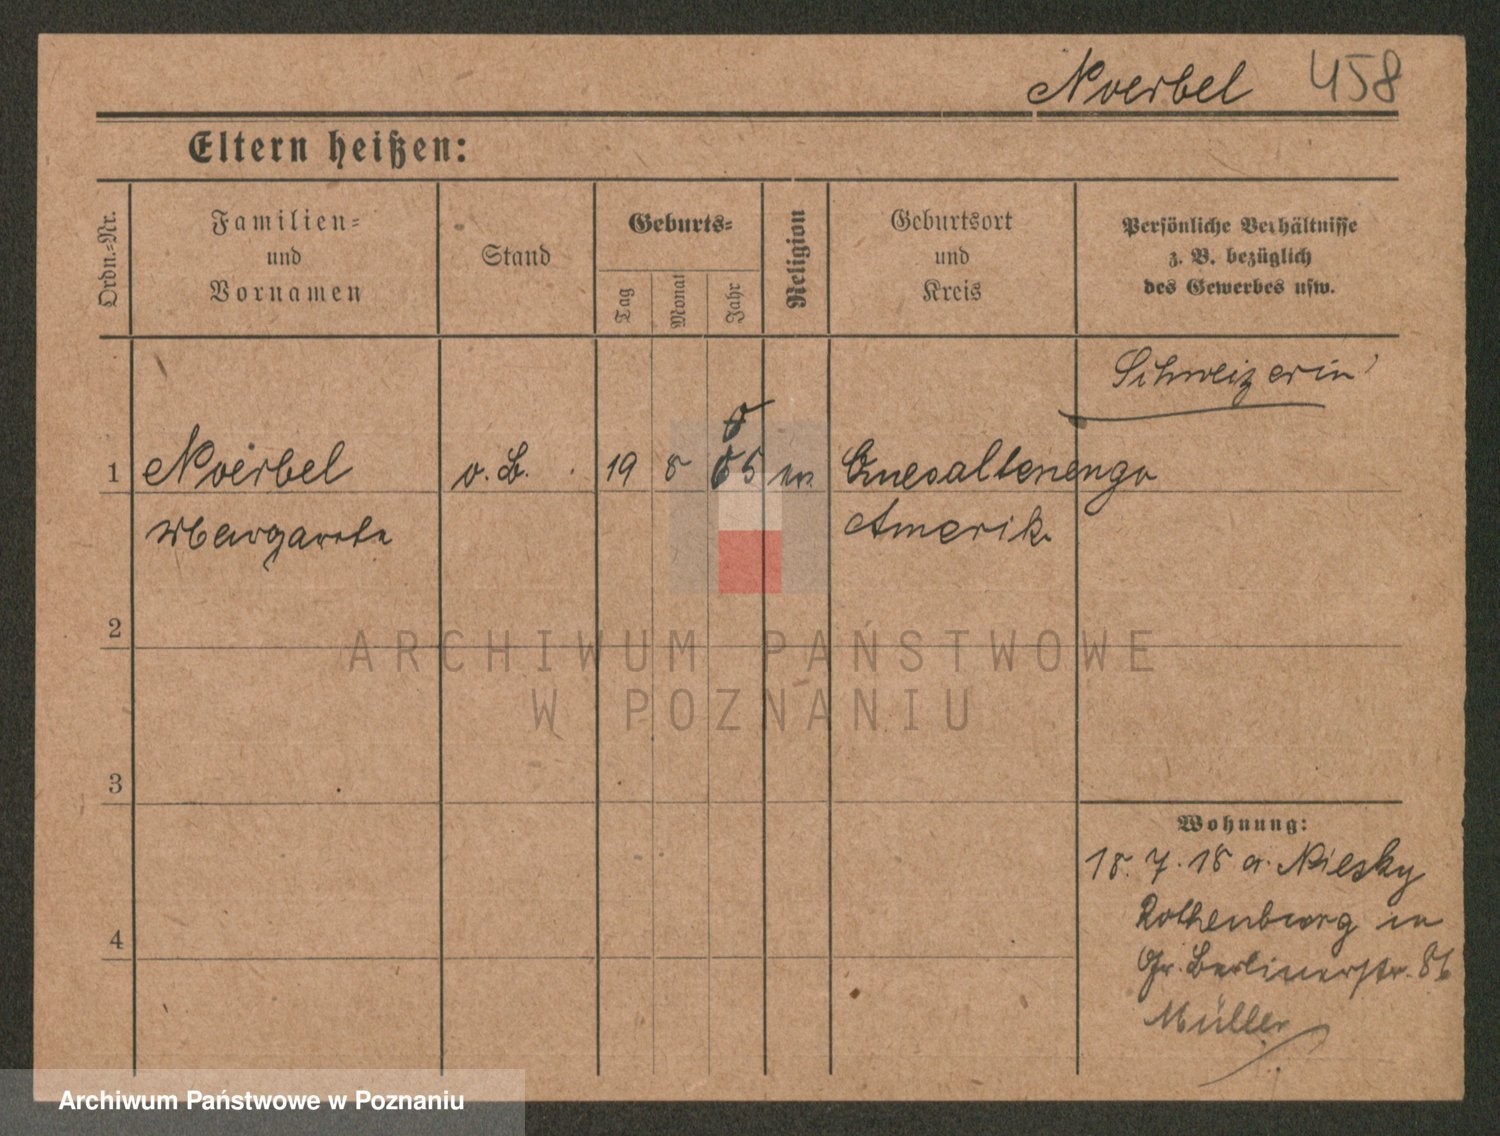 Noerbel 458
Eltern heißen:
Ordn.-Nr.
Familien-
und
Vornamen
Stand
Geburts-
Tag
Monat
Jahr
Religion
Geburtsort
und
Kreis
Persönliche Verhältnisse
z. B. bezüglich
des Gewerbes usw.
Schweizerin
1 Noerbel o. B. 19 8
Margarete Amerik
2
3
4
ARCHIWUM PAŃSTWOWE
W POZNANIU
Wohnung:
18. 7. 18 a. Niesky
Rothenburg in
Gr. Berlinerstr. 86
Müller
Archiwum Państwowe w Poznaniu